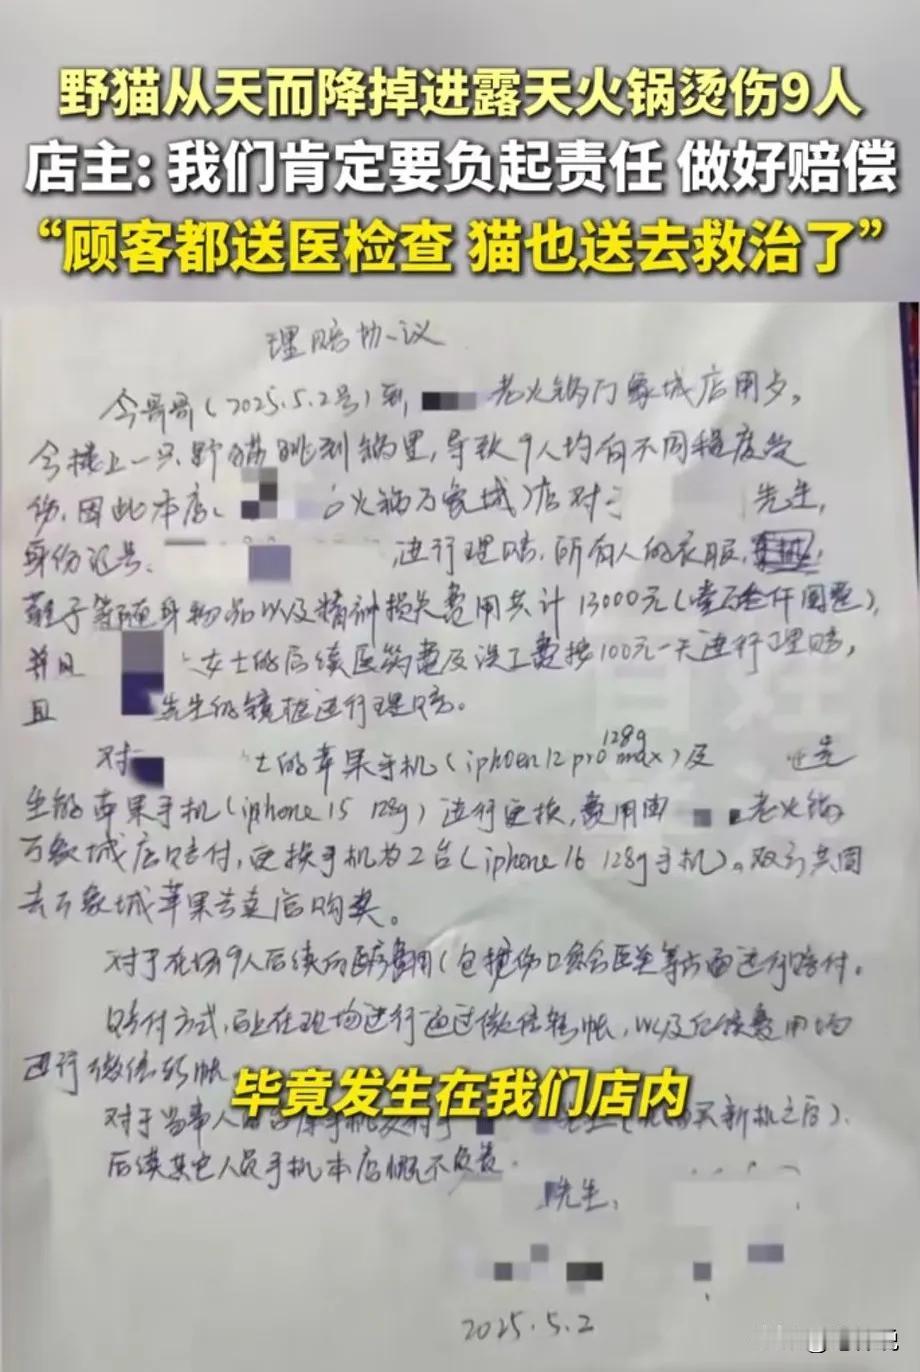 野猫从天而降掉进露天火锅烫伤9人
店主：我们肯定要负起责任 做好赔偿
“顾客都送医检查 猫也送去救治了”
理赔协议
今哥哥（2025.5.2号）到 老火锅万象城店用夕，
今楼上一只野猫跳到锅里，导致9人均有不同程度受
伤，因此本店（ 火锅万象城）店对于 先生，
身份证号： 进行理赔，所有人的衣服，
鞋子等随身物品以及精训损失费用共计13000元（
并且 女士的后续医药费及误工费按100元一天进行理赔，
且 先生的镜框进行理赔。
对 士的苹果手机（iphoen 12 pro max 128g）及 先
生的苹果手机（iphone 15 128g）进行更换，费用由 老火锅
万象城店赔付，更换手机为2台（iphone 16 128g手机）。双方共同
去万象城苹果专卖店购买。
对于在场9人后续的 费用（包括伤口 等方面进行赔付。
赔付方式，的在现场进行通过微信转帐，以及后续费用均
进行微信转帐。
毕竟发生在我们店内
对于当事人 手机 买新机之后）．
后续其它人员手机本店概不负责．
先生，
2025.5.2